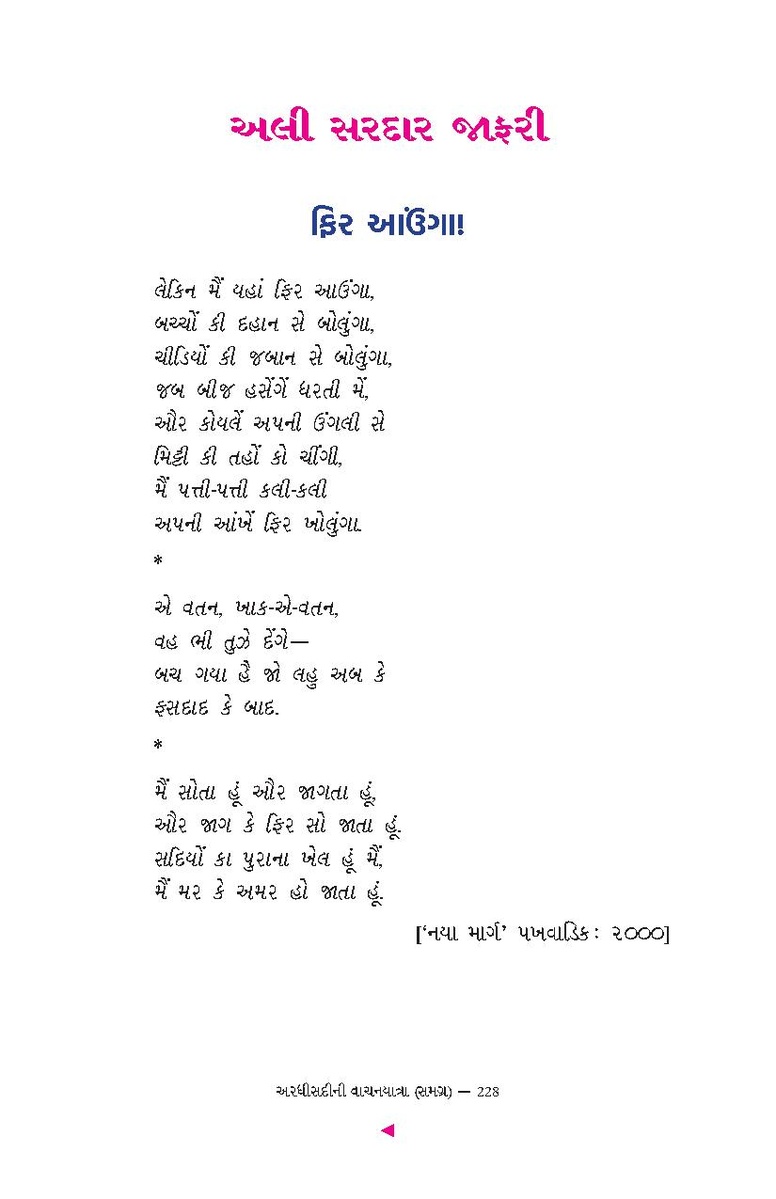 અલી સરદાર જાફરી
ફિર આઉંગા!
લેકિન મૈં યહાં ફિર આઉંગા,
બચ્ચોં કી દહાન સે બોલુંગા,
ચીડિયોં કી જબાન સે બોલુંગા,
જબ બીજ હસેંગેં ધરતી મેં,
ઔર કોયલેં અપની ઉંગલી સે
મિટ્ટી કી તહોં કો ચીંગી,
મૈં પત્તી-પત્તી કલી-કલી
અપની આંખેં ફિર ખોલુંગા.
*
એ વતન, ખાક-એ-વતન,
વહ ભી તુઝે દેંગે—
બચ ગયા હૈ જો લહુ અબ કે
ફસદાદ કે બાદ.
*
મૈં સોતા હૂં ઔર જાગતા હૂં,
ઔર જાગ કે ફિર સો જાતા હૂં.
સદિયોં કા પુરાના ખેલ હૂં મૈં,
મૈં મર કે અમર હો જાતા હૂં.
[‘નયા માર્ગ’ પખવાડિક: ૨૦૦૦]
અરધીસદીની વાચનયાત્રા (સમગ્ર) — 228